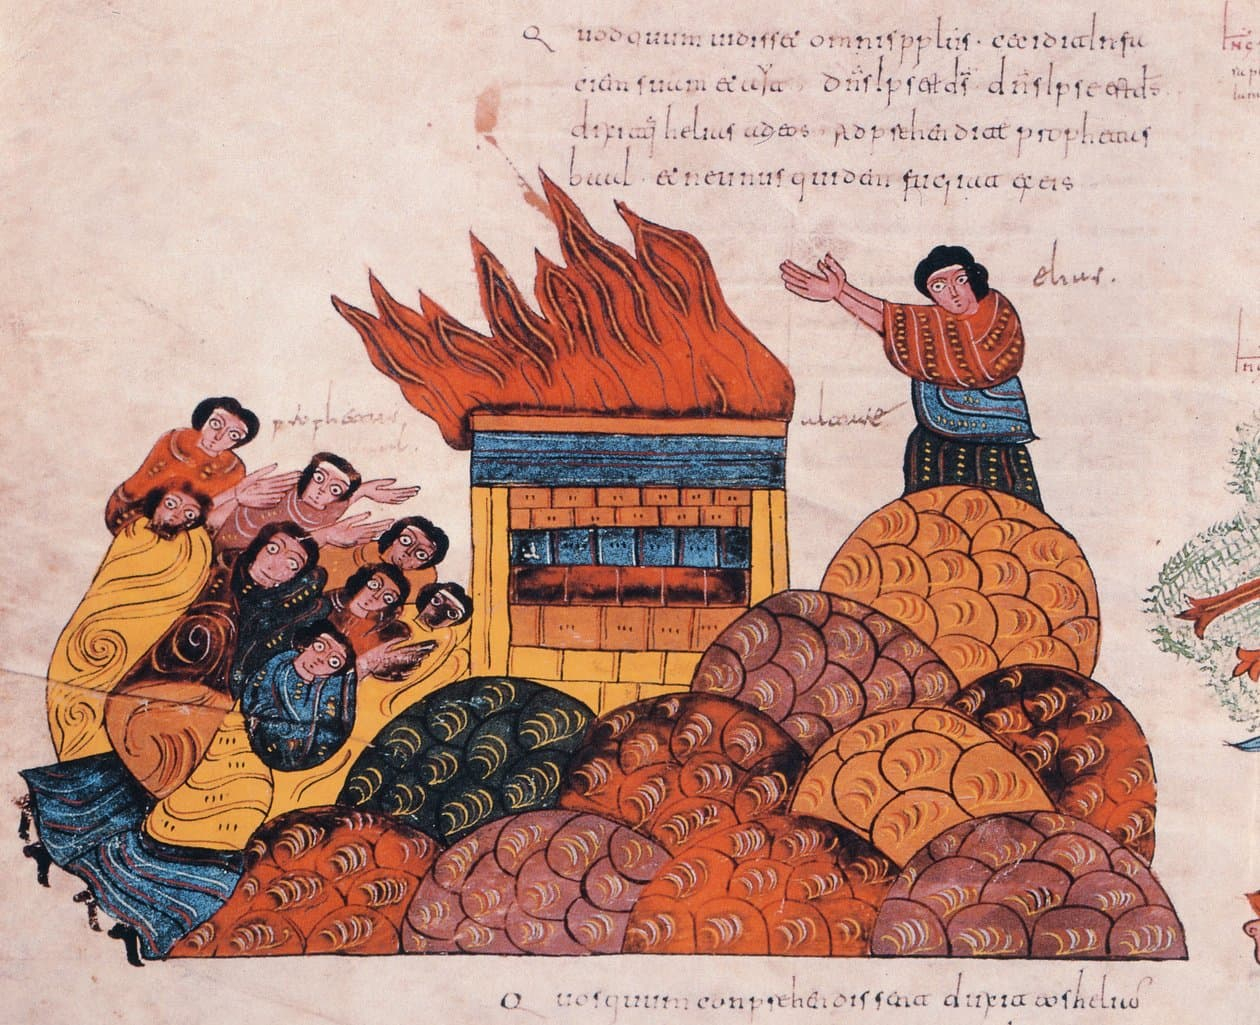 Quodquum uidisset omnis pplus. cecidit In fa
ciem suam et ayt. dns Ipse est ds. dns Ipse est ds.
dixitq helias ad eos. Adprehendite prophetas
baal. et ne unus quidem fugiat ex eis
elias.
prophetas
baal
altare
Quosquum conprehendissent duxit eos helias